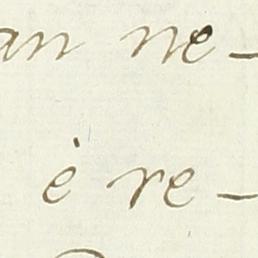 an ne-
è re-